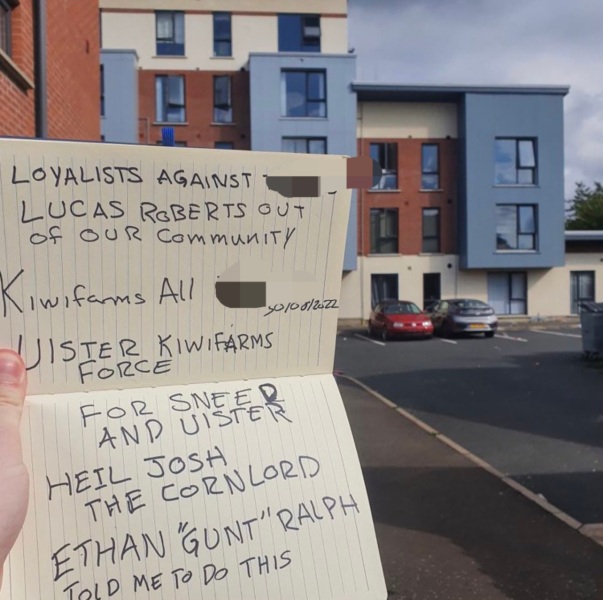 LOYALISTS AGAINST
LUCAS ROBERTS OUT
OF OUR COMMUNITY
Kiwifarms All
30/08/2022
UISTER KIWIFARMS
FORCE
FOR SNEED
AND UISTER
HEIL JOSH
THE CORNLORD
ETHAN "GUNT" RALPH
TOLD ME TO DO THIS